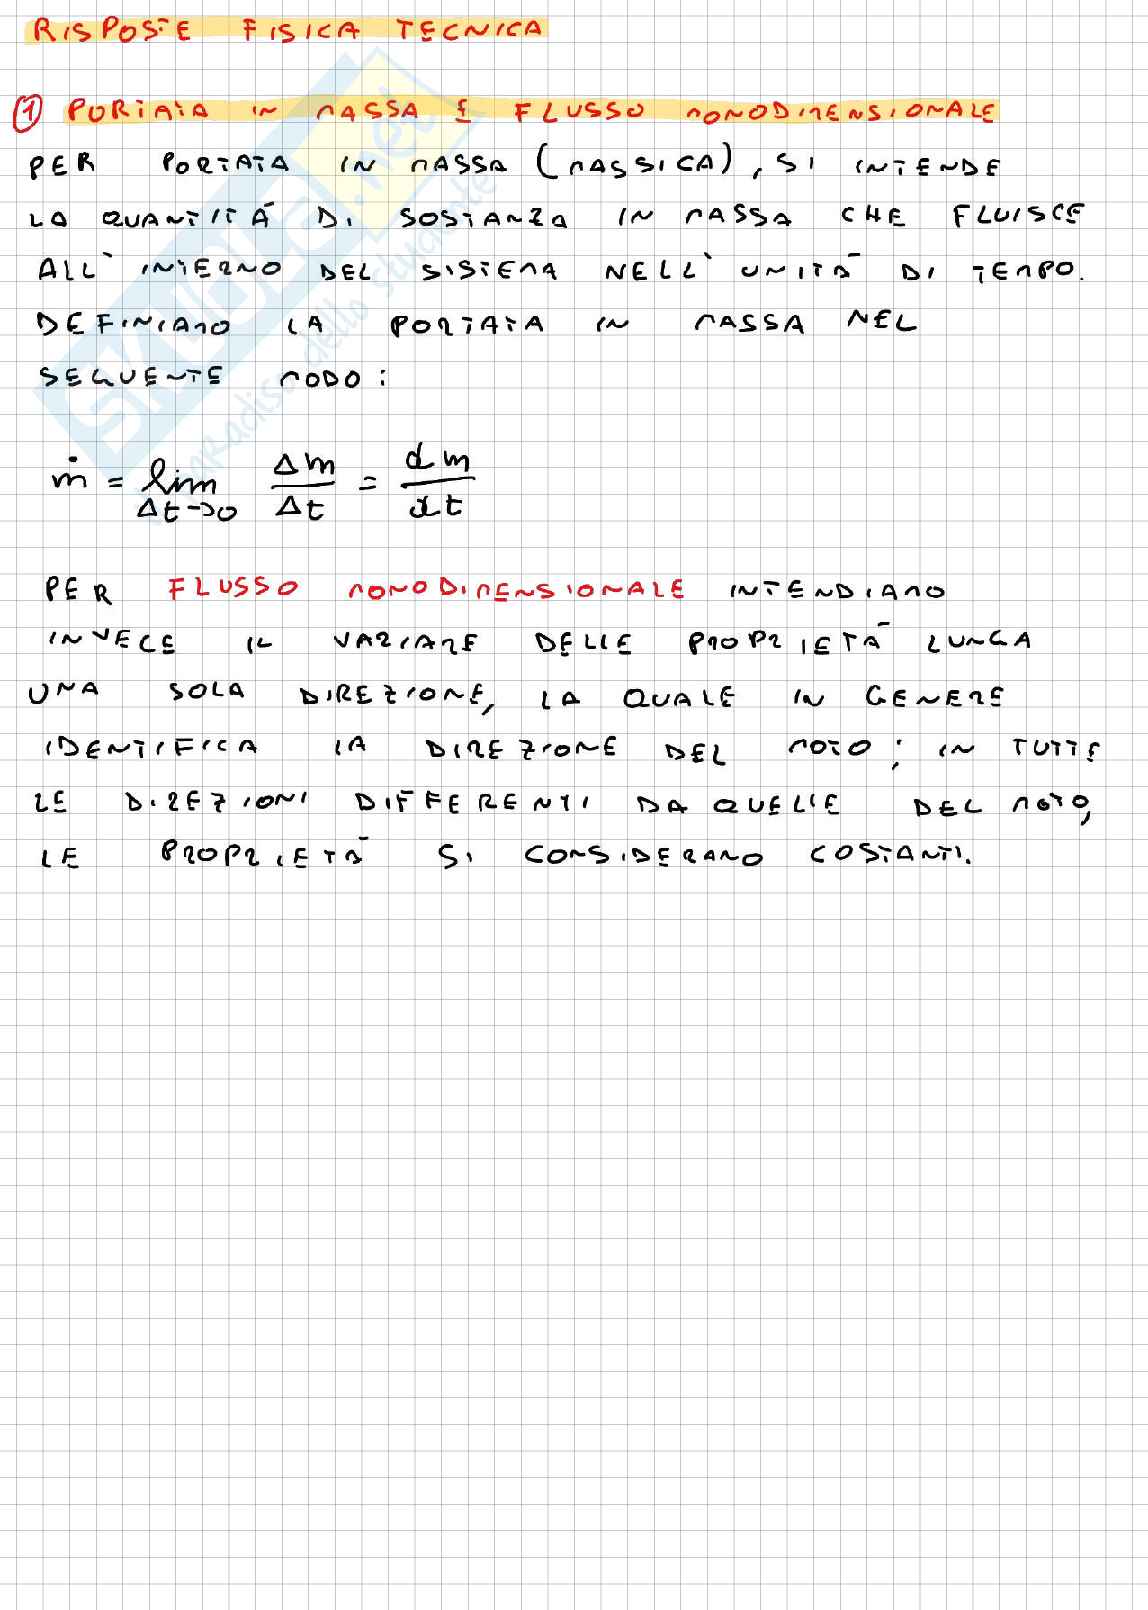 RISPOSTE FISICA TECNICA
① PORTATA IN MASSA E FLUSSO MONODIMENSIONALE
PER PORTATA IN MASSA (MASSICA), SI INTENDE
LA QUANTITÀ DI SOSTANZA IN MASSA CHE FLUISCE
ALL'INTERNO DEL SISTEMA NELL'UNITÀ DI TEMPO.
DEFINIAMO LA PORTATA IN MASSA NEL
SEGUENTE MODO:
ṁ = lim Δt→0 Δm/Δt = dm/dt
PER FLUSSO MONODIMENSIONALE INTENDIAMO
INVECE IL VARIARE DELLE PROPRIETÀ LUNGA
UNA SOLA DIREZIONE, LA QUALE IN GENERE
IDENTIFICA LA DIREZIONE DEL MOTO; IN TUTTE
LE DIREZIONI DIFFERENTI DA QUELLE DEL MOTO,
LE PROPRIETÀ SI CONSIDERANO COSTANTI.
skuola.net
il paradiso dello studente